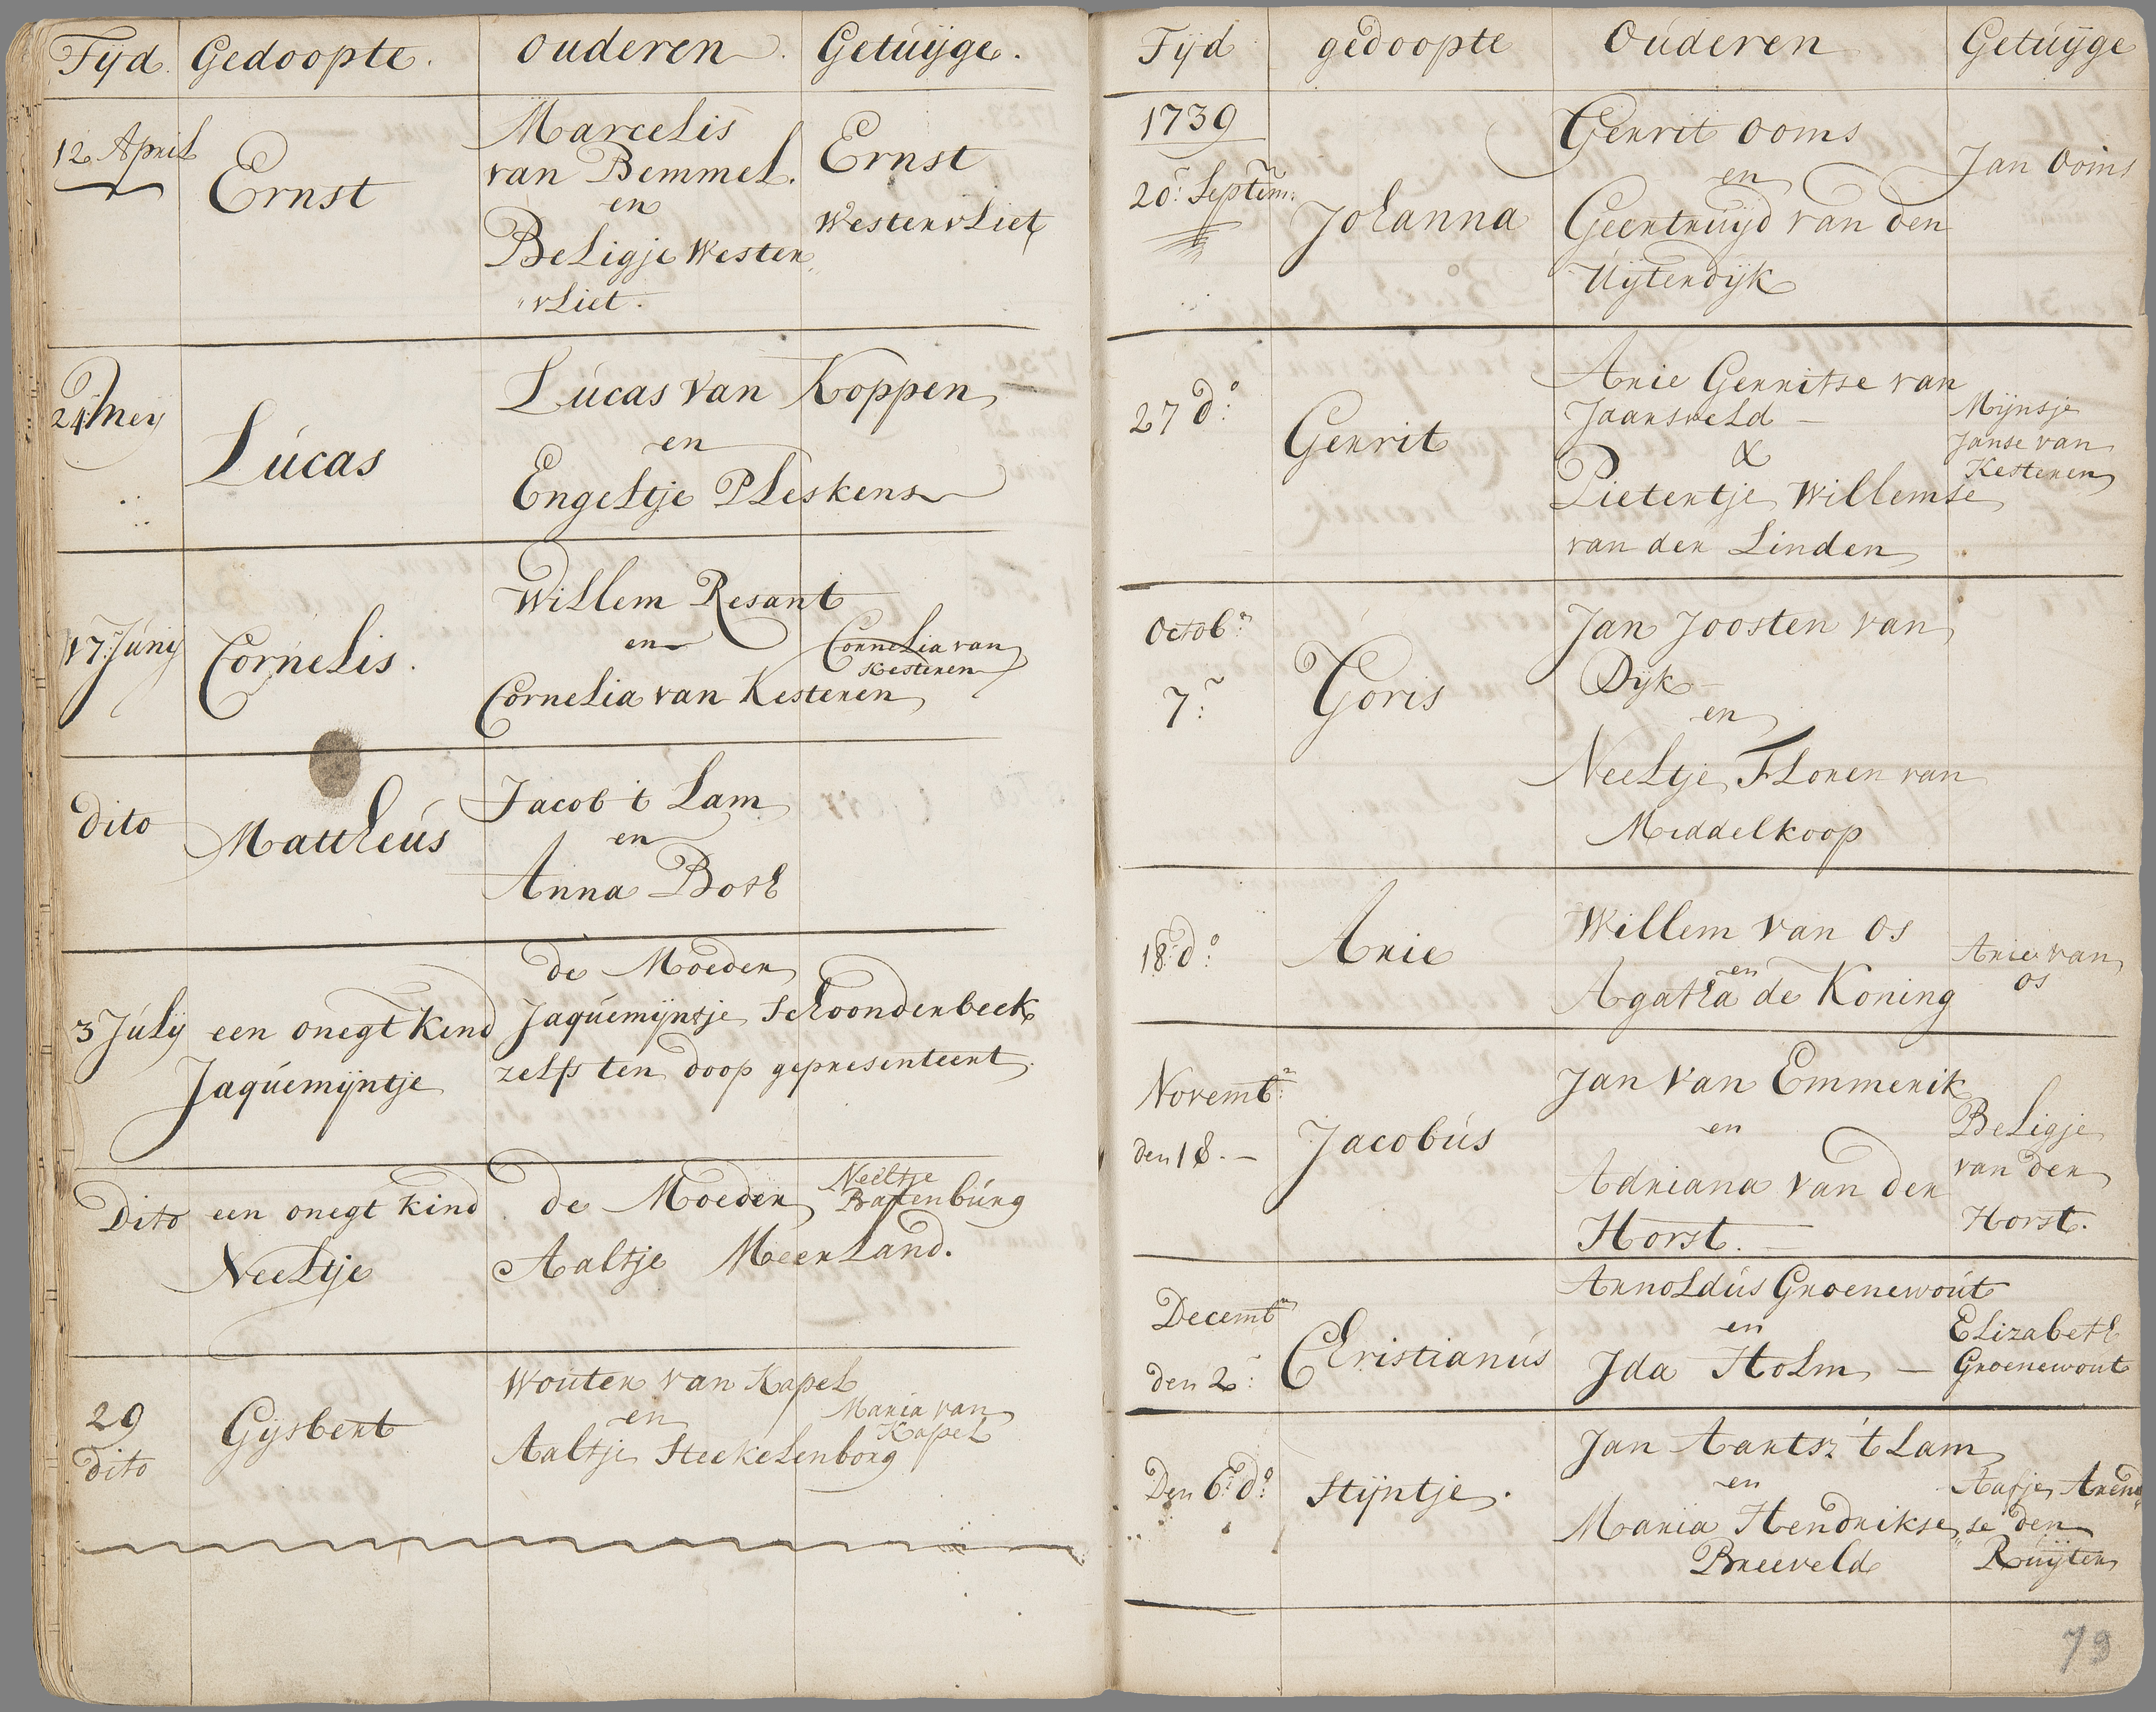 Tijd. Gedoopte. Ouderen. Getuijge.
12 April
Ernst
Marcelis
van Bemmel.
en
Beligje Wester,,
"vliet.
Ernst
Westervliet
24 Meij
Lucas
Lucas van Koppen
en
Engeltje Pleskens
17: Junij
Cornelis.
Willem Resant
en
Cornelia van Kesteren
Cornelia van
Kesteren
dito
Mattheus
Jacob 't Lam
en
Anna Both
3 Julij
een onegt kind
Jaquemijntje
de Moeder
Jaquemijntje Schoonderbeek
zelfs ten doop gepresenteert.
Dito
een onegt kind
Neeltje
de Moeder
Aaltje Meerland.
Neeltje
Battenburg
29
dito
Gijsbert
Wouter van Kapel
en
Aaltje Steekelenborg
Maria van
Kapel
Tijd gedoopte Ouderen Getuijge
1739
20: Septem:
Johanna
Gerrit Ooms
en
Geertruijd van den
Uijterdijk
Jan Ooms
27 do:
Gerrit
Arie Gerritse van
Jaarsveld —
&
Pietertje Willemse
van der Linden
Mijnsje
Janse van
Kesteren
Octobr:
7:
Goris
Jan Joosten van
Dijk
en
Neeltje Floren van
Middelkoop
18: do:
Arie
Willem van Os
en
Agatha de Koning
Arie van
Os
Novembr:
den 18. —
Jacobus
Jan van Emmerik
en
Adriana van der
Horst. —
Beligje
van der
Horst.
Decembr
den 2:
Christianus
Arnoldus Groenewout
en
Ida Holm —
Elizabeth
Groenewout
Den 6: do:
Stijntje.
Jan Aartsz 't Lam
en
Maria Hendrikse
Breeveld
Aafje Arend"
"se den
Ruijter
79